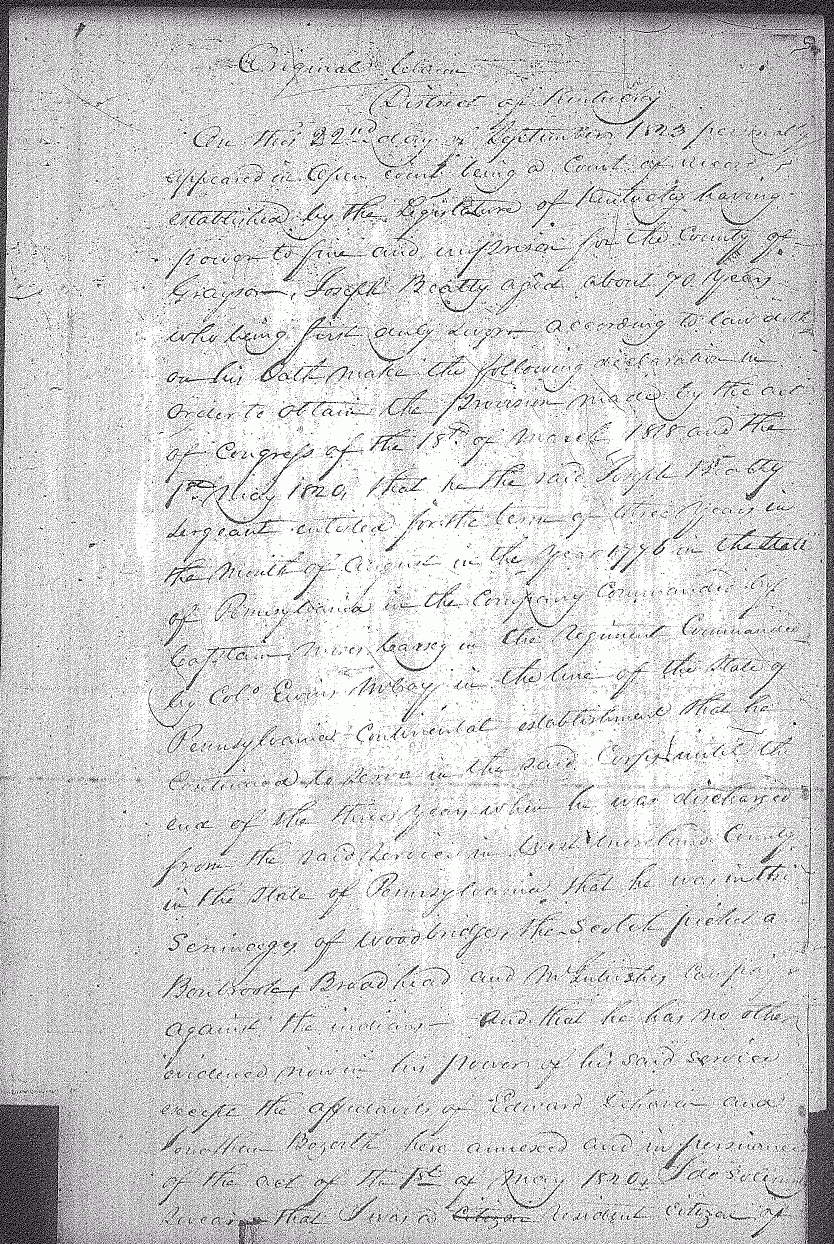 Original Claim
District of Kentucky
On this 22nd day of September 1823 personally
appeared in Open court being a Court of record
established by the Legislature of Kentucky having
power to fine and imprison for the County of
Grayson, Joseph Beatty aged about 70 Years
who being first duly Sworn according to law doth
on his Oath make the following declaration in
order to obtain the Provision made by the act
of Congress of the 18th of March 1818 and the
1st May 1820, that he the said Joseph Beatty
Sergeant enlisted for the term of three Years in
the Month of August in the Year 1776 in the State
of Pennsylvania in the Company Commanded by
Captain in the Regiment Commanded
by Colo Ewins McCoy in the line of the State of
Pennsylvania Continental establishment that he
Continued to Serve in the said Corps until the
end of the three Years when he was discharged
from the said Service in West moreland County
in the State of Pennsylvania that he was in the
of Woodbridge, the Scotch picket a
Bonbrook, Broadhead and McIntoshes Campaign
against the indians — And that he has no other
evidence now in his power of his said service
except the affidavits of Edward and
Jonathan Bozarth here annexed and in persuance
of the act of the 1st of May 1820, I do Solemnly
Swear that I was a Citizen resident Citizen of